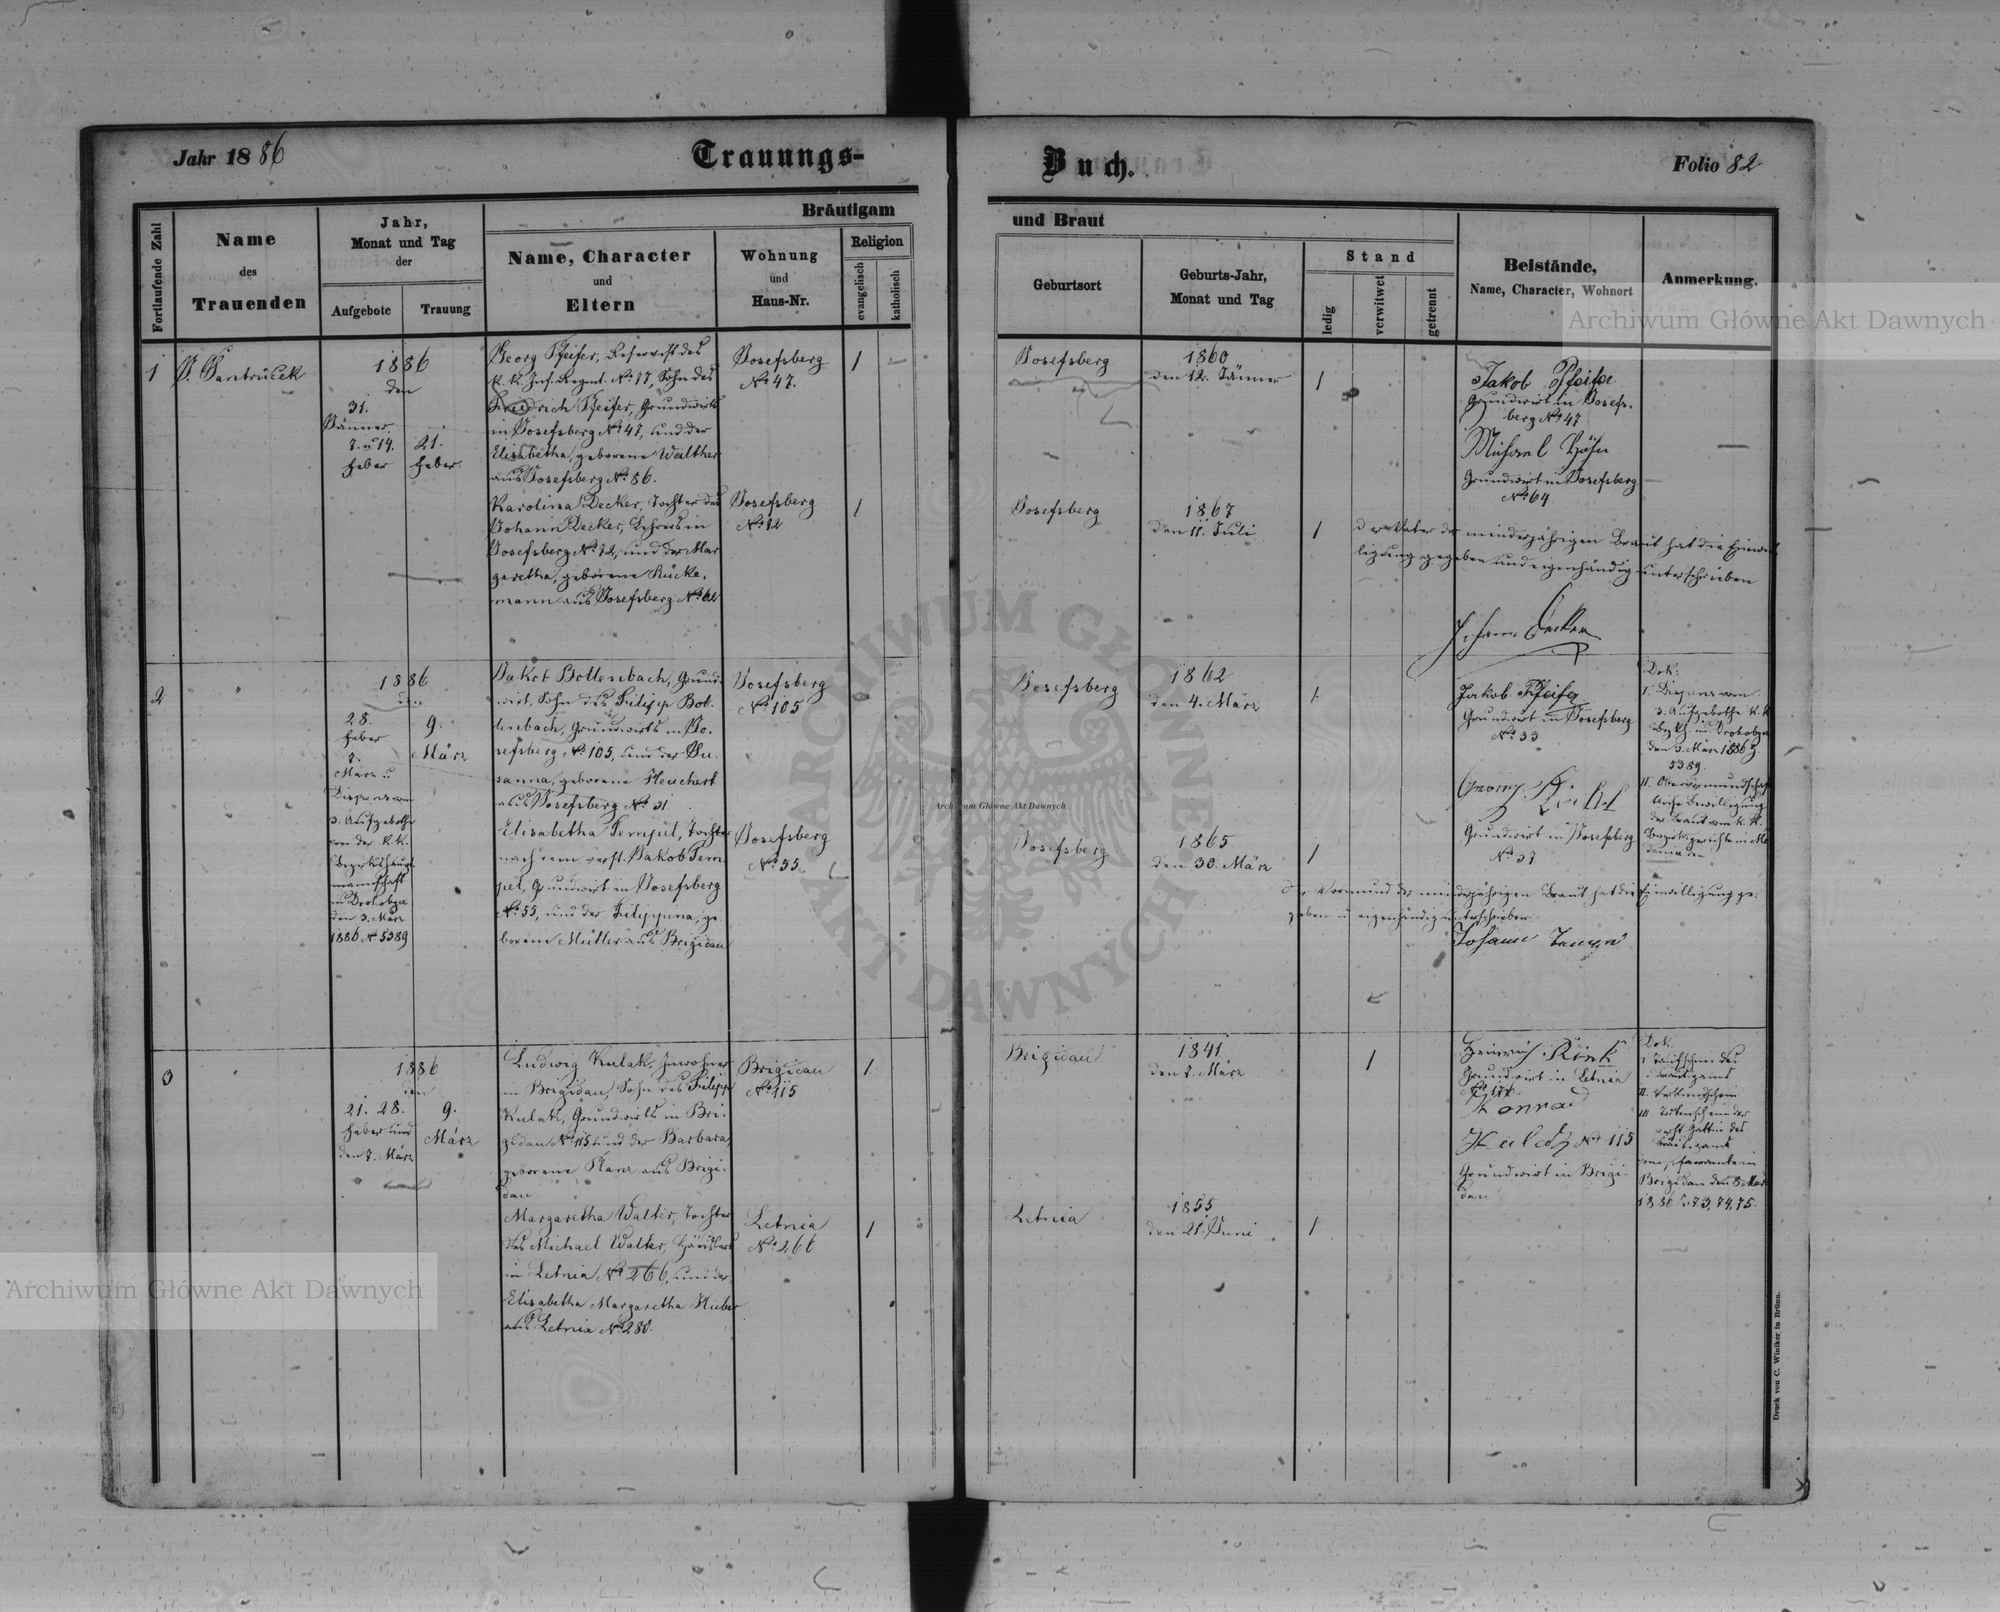 Jahr 1886
Trauungs-
Buch.
Folio 82
Fortlaufende Zahl
Name
des
Trauenden
Jahr,
Monat und Tag
der
Aufgebote
Trauung
Bräutigam
Name, Character
und
Eltern
Wohnung
und
Haus-Nr.
Religion
evangelisch
katholisch
und Braut
Geburtsort
Geburts-Jahr,
Monat und Tag
Stand
ledig
verwitwet
getrennt
Beistände,
Name, Character, Wohnort
Anmerkung.
1
1886
den
31.
Jänner
7. u 14.
Feber
21.
Feber
Georg Pfeifer, Reservist des
k. k. Inf. Regmt. No 77, Sohn des
Friedrich Pfeifer, Grundwirts
in Josefsberg No 47, und der
Elisabetha, geborene Walther
aus Josefsberg No 86.
Josefsberg
No 47.
1
Josefsberg
1860
den 12. Jänner
1
Jakob Pfeifer
Grundwirt in Josefs-
berg No 47
Michael Höhn
Grundwirt in Josefsberg
No 64
Karolina Decker, Tochter des
Johann Decker, in
Josefsberg No 72, und der Mar
garetha, geborene Rücke-
mann aus Josefsberg No 62
Josefsberg
No 72
1
Josefsberg
1867
den 11. Juli
1
Der Vater der minderjährigen Braut hat die Einwil
ligung gegeben und eigenhändig unterschrieben
Johann Decker
2
"
1886
den
28.
Feber
7.
März u
Dispens vom
3. Aufgebothe
von der k.k.
Bezirkshaupt
mannschaft
in Drohobycz
den 3. März
1886 No 5389
9.
März
Jakob Bollenbach, Grund-
wirt, Sohn des Filipp Bol-
lenbach, Grundwirts in Jo-
sefsberg No 105, und der Su-
sanna, geborene Heuchert
aus Josefsberg No 31
Josefsberg
No 105
Josefsberg
1862
den 4. März
1
Jakob Pfeifer
Grundwirt in Josefsberg
No 33
Grundwirt in Josefsberg
No 37
Dok:
I. Dispens vom
3. Aufgebothe k. k.
in Drohobycz
den 3. März 1886 Z.
5389.
II. Obervormundschaft
liche Bewilligung
der Braut vom k. k.
Bezirksgerichte in Me
denia den
Elisabetha Tempel, Tochter
nach dem verst. Jakob Tem-
pel, Grundwirt in Josefsberg
No 55, und der Filippina, ge-
borene Müller aus Brigidau
Josefsberg
No 55.
Josefsberg
1865
den 30. März
1
Der Vormund der minderjährigen Braut hat die Einwilligung ge-
geben u eigenhändig unterschrieben
Johann
3
1886
den
21. 28.
Feber und
den 7. März
9.
März
Ludwig Kulak, Inwohner
in Brigidau, Sohn des Filipp
Kulak, Grundwirts in Bri-
gidau No 115 und der Barbara,
geborene aus Brigi-
dau
Brigidau
No 115
1
Brigidau
1841
den 7. März
1
Heinrich Rink
Grundwirt in Letnia
Konrad
No 115
Grundwirt in Brigi-
dau
Dok:
I. Taufschein des
Bräutigams
II. Verkündschein
III. Totenschein der
verst. Gattin des
Bräutigams
vom Pfarramte in
Brigidau den 8. März
1886 Z. 73, 74, 75.
Margaretha Walter, Tochter
des Michael Walter, Häuslers
in Letnia No 266, und der
Elisabetha Margaretha Huber
aus Letnia No 280.
Letnia
No 266
1
Letnia
1855
den 21. Juni
1
Druck von C. Winiker in Brünn.
Archiwum Główne Akt Dawnych
Archiwum Główne Akt Dawnych
Archiwum Główne Akt Dawnych
ARCHIWUM GŁÓWNE AKT DAWNYCH